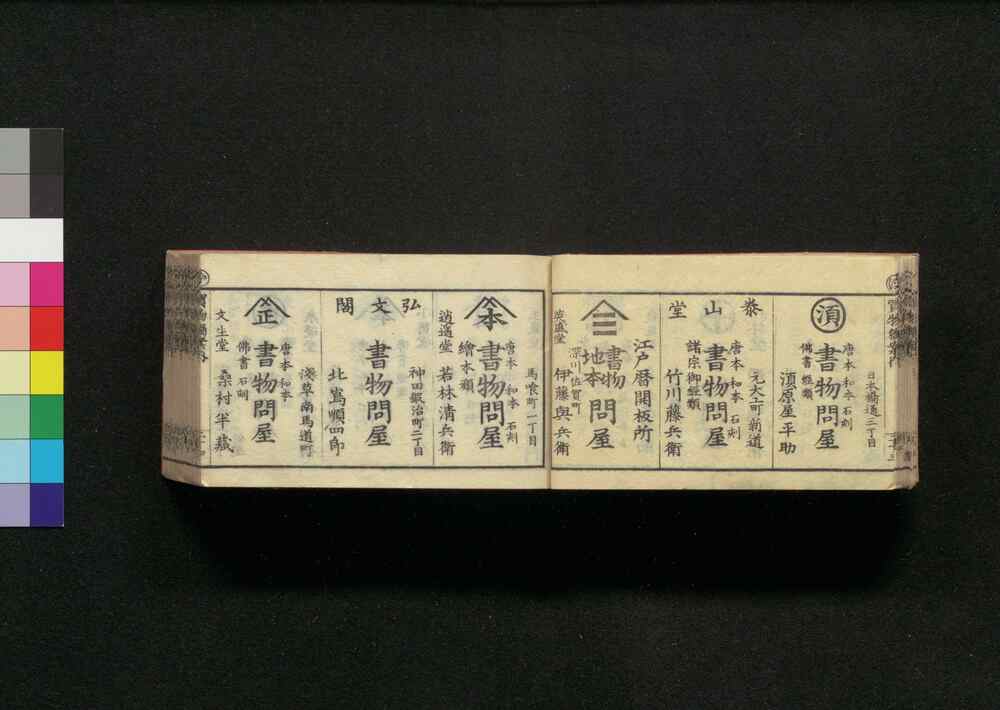 須
日本橋通二丁目
唐本 和本 石刻
書物問屋
佛書 經類
須原屋平助
泰山堂
元大工町新道
唐本 和本 石刻
書物問屋
諸宗御經類
竹川藤兵衛
江戸暦開板所
三
書物地本問屋
深川佐賀町
伊藤與兵衛
馬喰町一丁目
本
唐本 和本 石刻
書物問屋
繪本類
逍遙堂 若林清兵衛
弘文閣
神田鍛冶町二丁目
書物問屋
北嶌順四郎
淺草南馬道町
正
唐本 和本
書物問屋
佛書 石刻
文生堂 桑村半蔵